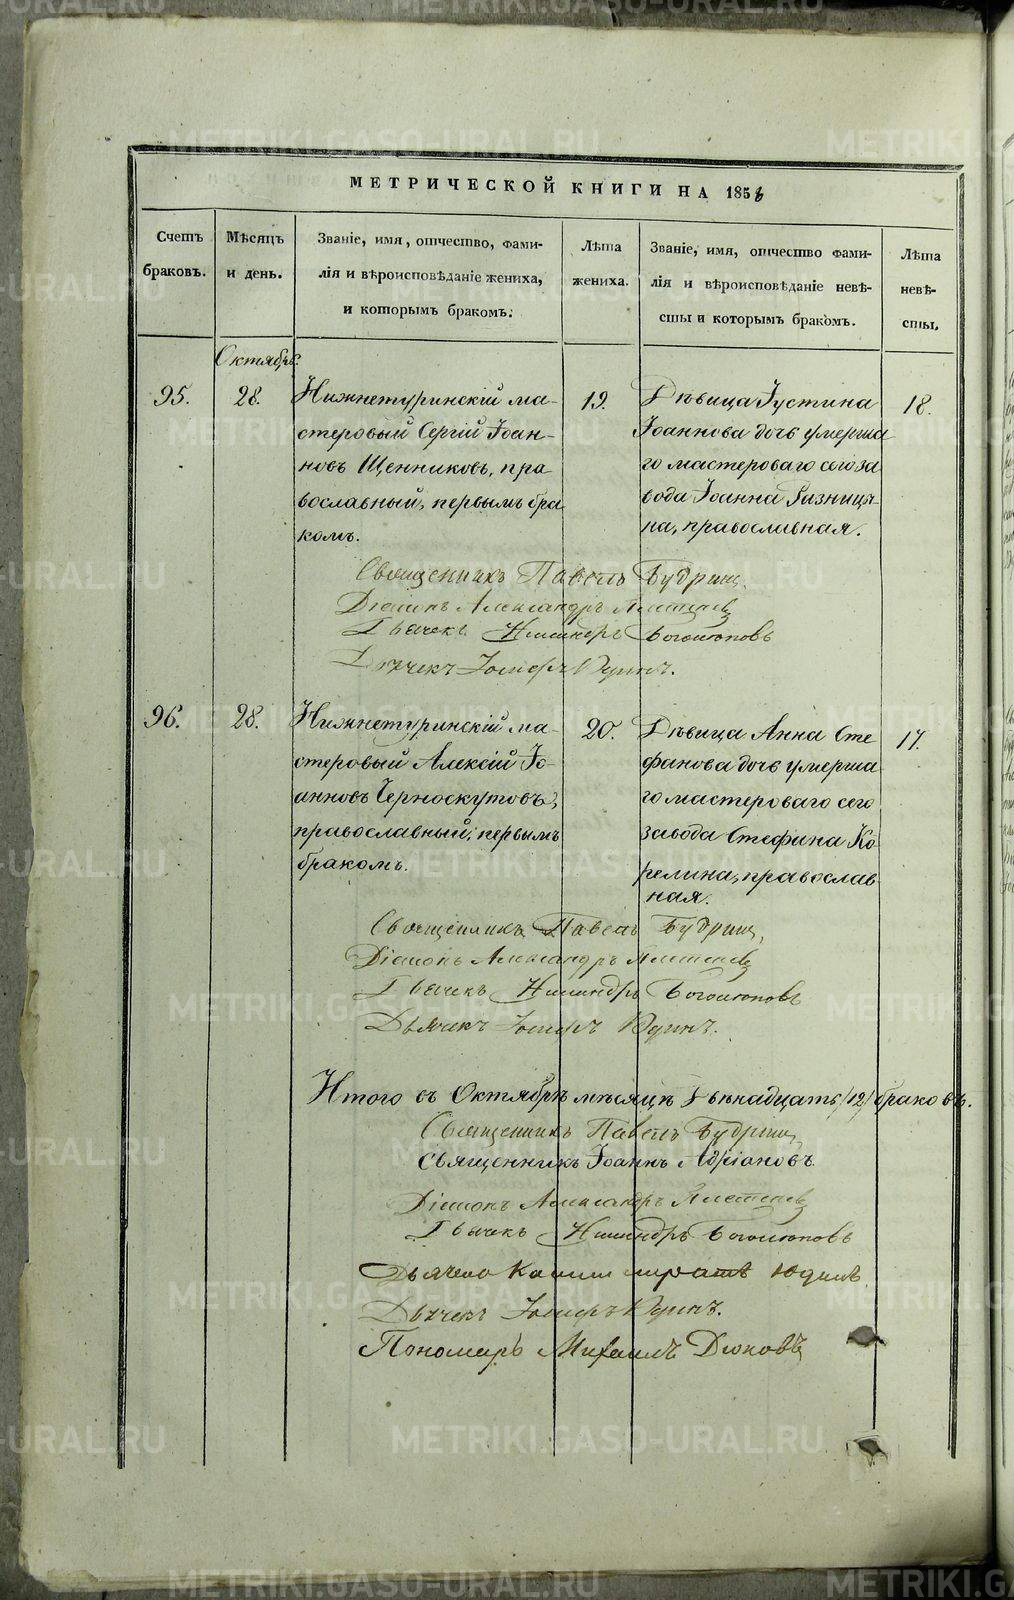 МЕТРИЧЕСКОЙ КНИГИ НА 1858
Счетъ браковъ.
Мѣсяцъ и день.
Званіе, имя, отчество, фами-
лія и вѣроисповѣданіе жениха,
и которымъ бракомъ.
Лѣта жениха.
Званіе, имя, отчество фами-
лія и вѣроисповѣданіе невѣ-
сты и которымъ бракомъ.
Лѣта невѣ-
сты.
Октябрь.
95.
28.
Нижнетуринскій ма-
стеровый Сергій Іоан-
новъ Щенниковъ, пра
вославный, первымъ бра
комъ.
19.
Дѣвица Іустина
Іоаннова дочь умерша
го мастероваго сего за
вода Іоанна Разницы-
на, православная.
18.
Священникъ Павелъ
Діаконъ Александръ
Дьячекъ Никандръ Боголюповъ
Дьячекъ Іосифъ Юдинъ.
96.
28.
Нижнетуринскій ма-
стеровый Алексій Іо-
анновъ Черноскутовъ,
православный, первымъ
бракомъ.
20.
Дѣвица Анна Сте
фанова дочь умерша-
го мастероваго сего
завода Стефана Ко-
релина, православ-
ная.
17.
Священникъ Павелъ
Діаконъ Александръ
Дьячекъ Никандръ Боголюповъ
Дьячекъ Іосифъ Юдинъ.
Итого въ Октябрѣ мѣсяцѣ двѣнадцать /12/ браковъ.
Священникъ Павелъ
Священникъ Іоаннъ Адріановъ.
Діаконъ Александръ
Дьячекъ Никандръ Боголюповъ
Юдинъ
Дьячекъ Іосифъ Юдинъ.
Пономарь Михаилъ Дюковъ
METRIKI.GASO-URAL.RU